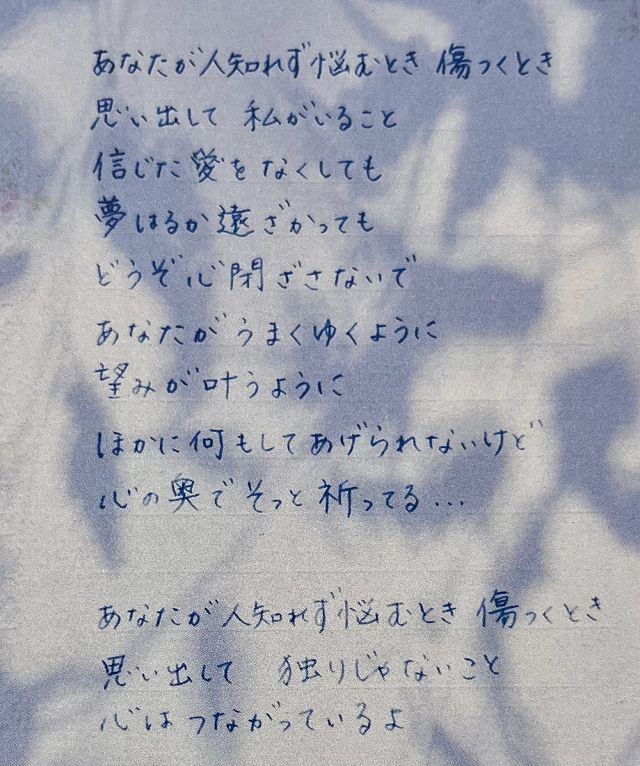 あなたが人知れず悩むとき 傷つくとき
思い出して 私がいること
信じた愛をなくしても
夢はるか遠ざかっても
どうぞ心閉ざさないで
あなたがうまくゆくように
望みが叶うように
ほかに何もしてあげられないけど
心の奥でそっと祈ってる…
あなたが人知れず悩むとき 傷つくとき
思い出して 独りじゃないこと
心はつながっているよ